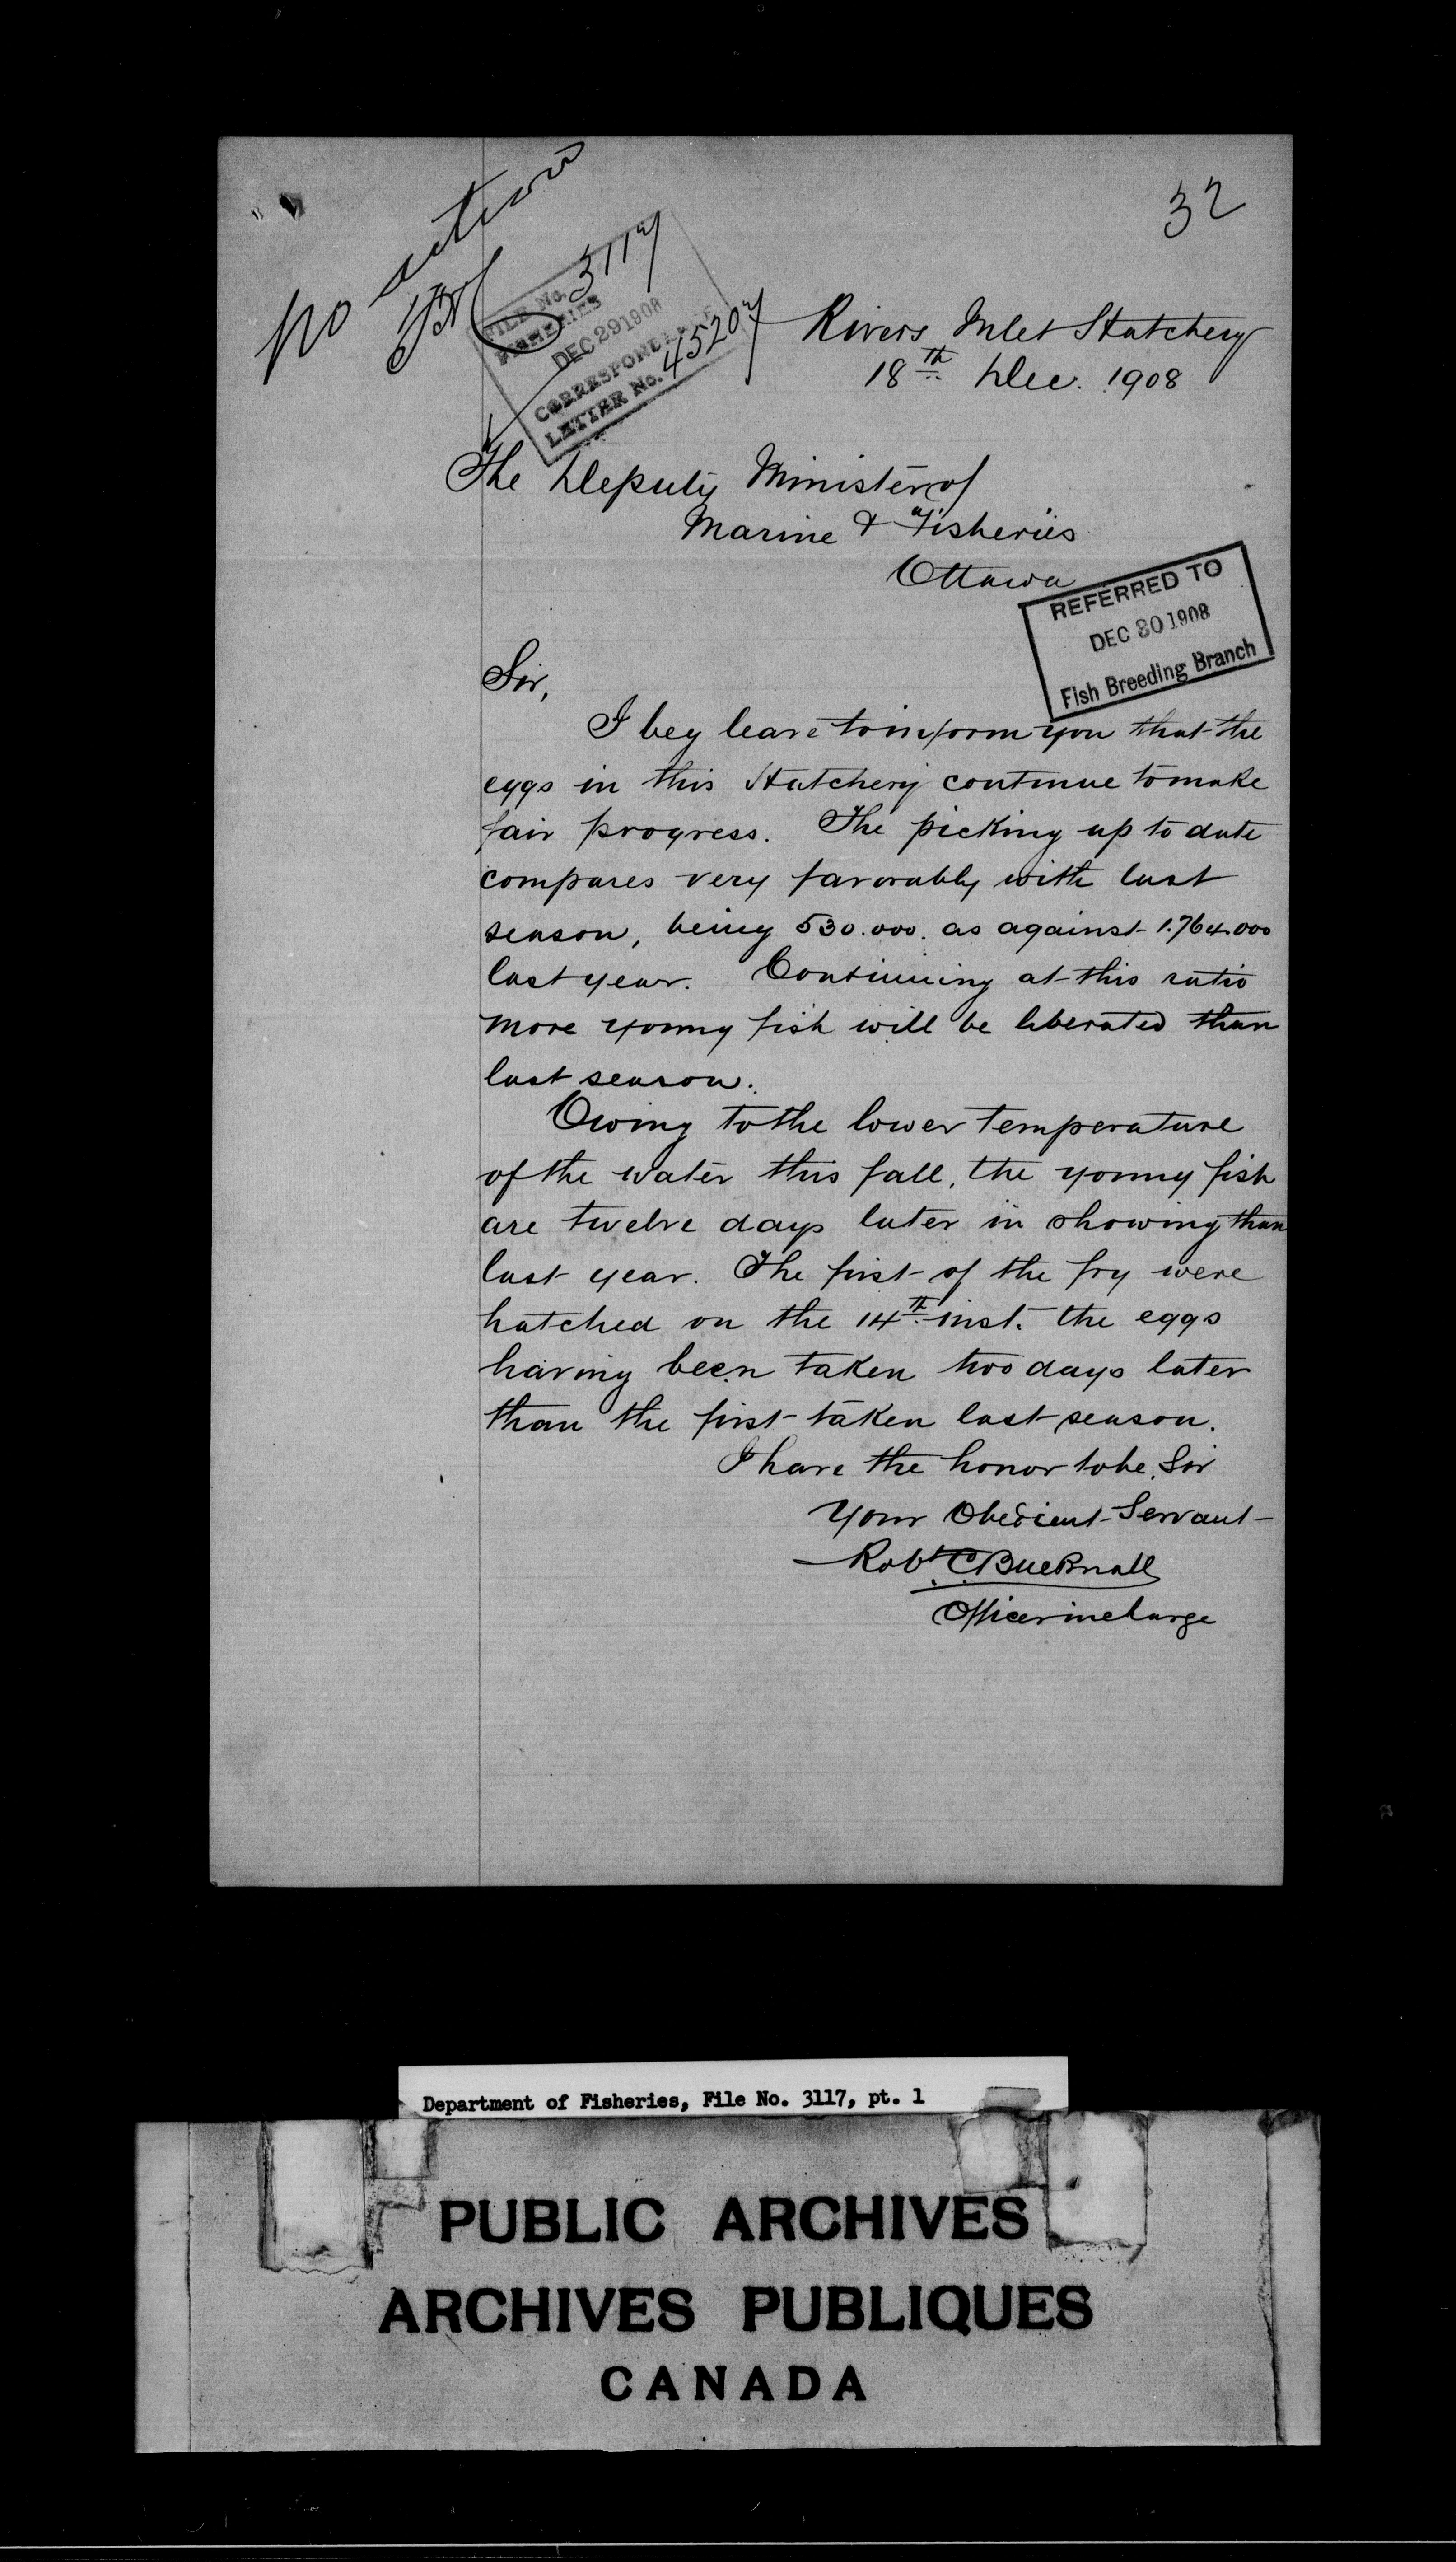 32
No action
FILE No. 3117
FISHERIES
DEC 29 1908
CORRESPONDENCE
LETTER No. 45207
Rivers Inlet Hatchery
18th Dec. 1908
The Deputy Minister of
Marine & Fisheries
Ottawa
REFERRED TO
DEC 30 1908
Fish Breeding Branch
Sir,
I beg leave to inform you that the
eggs in this Hatchery continue to make
fair progress. The picking up to date
compares very favorably with last
season, being 530.000. as against 1.764.000
last year. Continuing at this ratio
more young fish will be liberated than
last season.
Owing to the lower temperature
of the water this fall, the young fish
are twelve days later in showing than
last year. The first of the fry were
hatched on the 14th inst. the eggs
having been taken two days later
than the first taken last season.
I have the honor to be, Sir
Your Obedient Servant
Robt C Bucknall
Officer in charge
Department of Fisheries, File No. 3117, pt. 1
PUBLIC ARCHIVES
ARCHIVES PUBLIQUES
CANADA